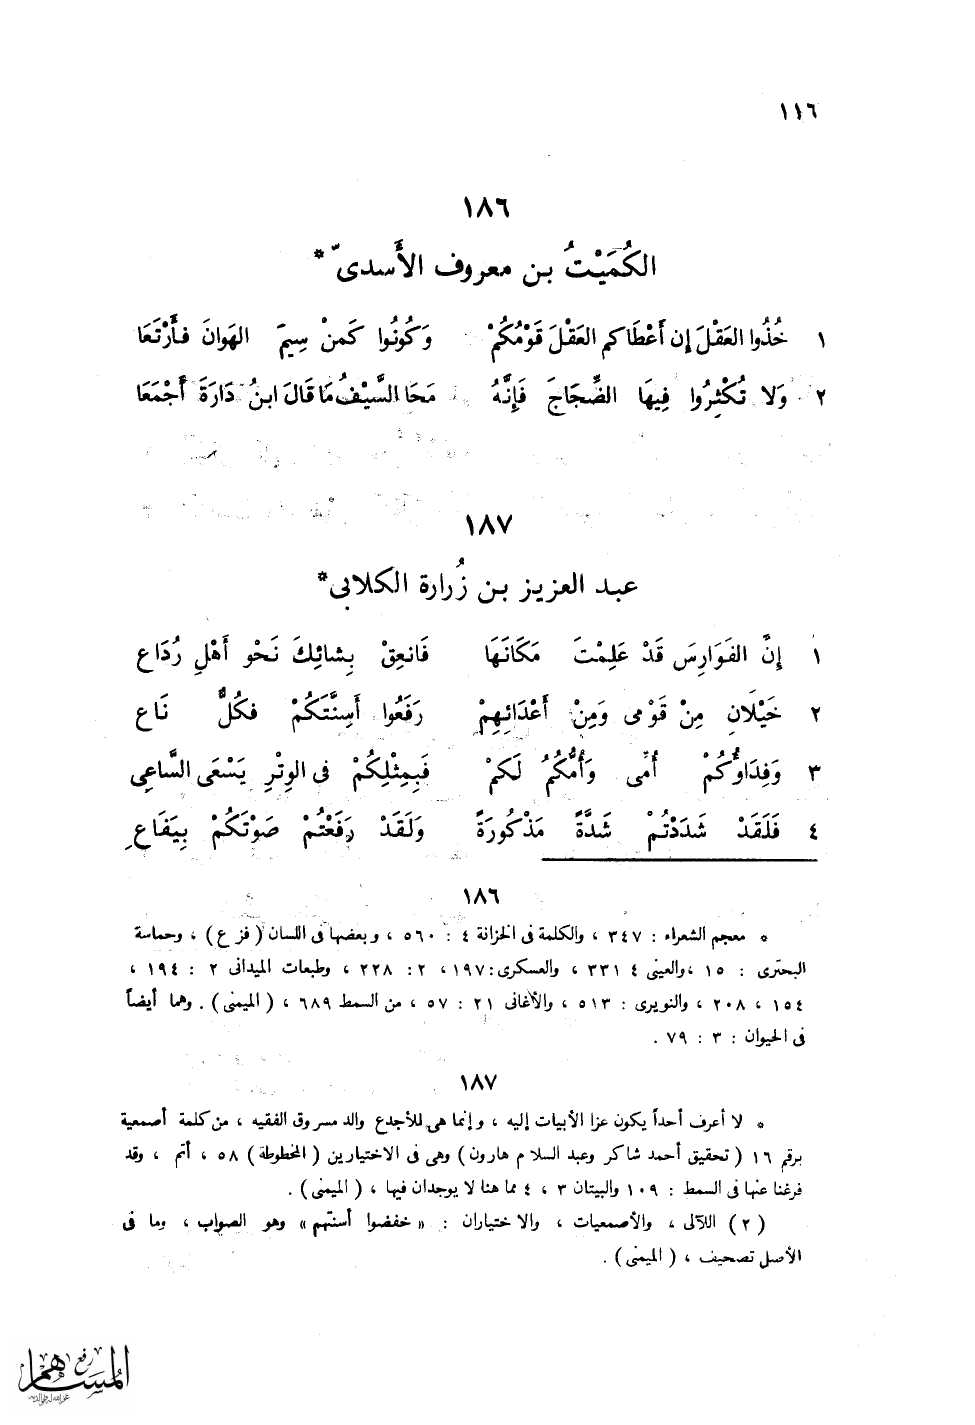 ١١٦
١٨٦
الكُمَيْتُ بن معروف الأَسدىّ *
١ خُذُوا العَقْلَ إِن أَعْطَاكم العَقْلَ قَوْمُكُمْ وَكُونُوا كَمنْ سِيمَ الهَوانَ فأَرْتَعَا
٢ وَلا تُكْثِرُوا فِيهَا الضِّجَاجَ فَإِنَّهُ مَحَا السَّيْفُ مَا قَالَ ابنُ دَارَةَ أَجْمَعَا
١٨٧
عبد العزيز بن زُرارة الكلابى *
١ إِنَّ الفَوَارِسَ قَدْ عَلِمْتَ مَكَانَهَا فَانعِقْ بِشائِكَ نَحْو أَهْلِ رُدَاعِ
٢ خَيْلَانِ مِنْ قَوْمى وَمِنْ أَعْدَائِهِمْ رَفَعُوا أَسِنَّتَكُمْ فكُلٌّ نَاعِ
٣ وَفِدَاؤُكُمْ أُمِّى وَأُمُّكُمُ لَكمْ فَبِمِثْلِكُمْ فى الوِتْرِ يَسْعَى السَّاعِى
٤ فَلَقَدْ شَدَدْتُمْ شَدَّةً مَذْكُورَةً وَلَقَدْ رَفَعْتُمْ صَوْتَكُمْ بِيَفَاعِ
١٨٦
* معجم الشعراء : ٣٤٧ ، والكلمة فى الخزانة ٤ : ٥٦٠ ، وبعضها فى اللسان ( فز ع ) ، وحماسة
البحترى : ١٥ ، والعينى ٤ ٣٣١ ، والعسكرى : ١٩٧ ، ٢ : ٢٢٨ ، وطبعات الميدانى ٢ : ١٩٤ ،
١٥٤ ، ٢٠٨ ، والنويرى : ٥١٣ ، والأغانى ٢١ : ٥٧ ، من السمط ٦٨٩ ، ( الميمنى ) . وهما أيضاً
فى الحيوان : ٣ : ٧٩ .
١٨٧
* لا أعرف أحداً يكون عزا الأبيات إليه ، وإنما هى للأجدع والد مسروق الفقيه ، من كلمة أصمعية
برقم ١٦ ( تحقيق أحمد شاكر وعبد السلام هارون ) وهى فى الاختيارين ( المخطوطة ) ٥٨ ، أتم ، وقد
فرغنا عنها فى السمط : ١٠٩ والبيتان ٣ ، ٤ مما هنا لا يوجدان فيها ، ( الميمنى ) .
( ٢ ) اللآلى ، والأصمعيات ، والاختياران : « خفضوا أسنتهم » وهو الصواب ، وما فى
الأصل تصحيف ، ( الميمنى ) .
رفع
المساهم